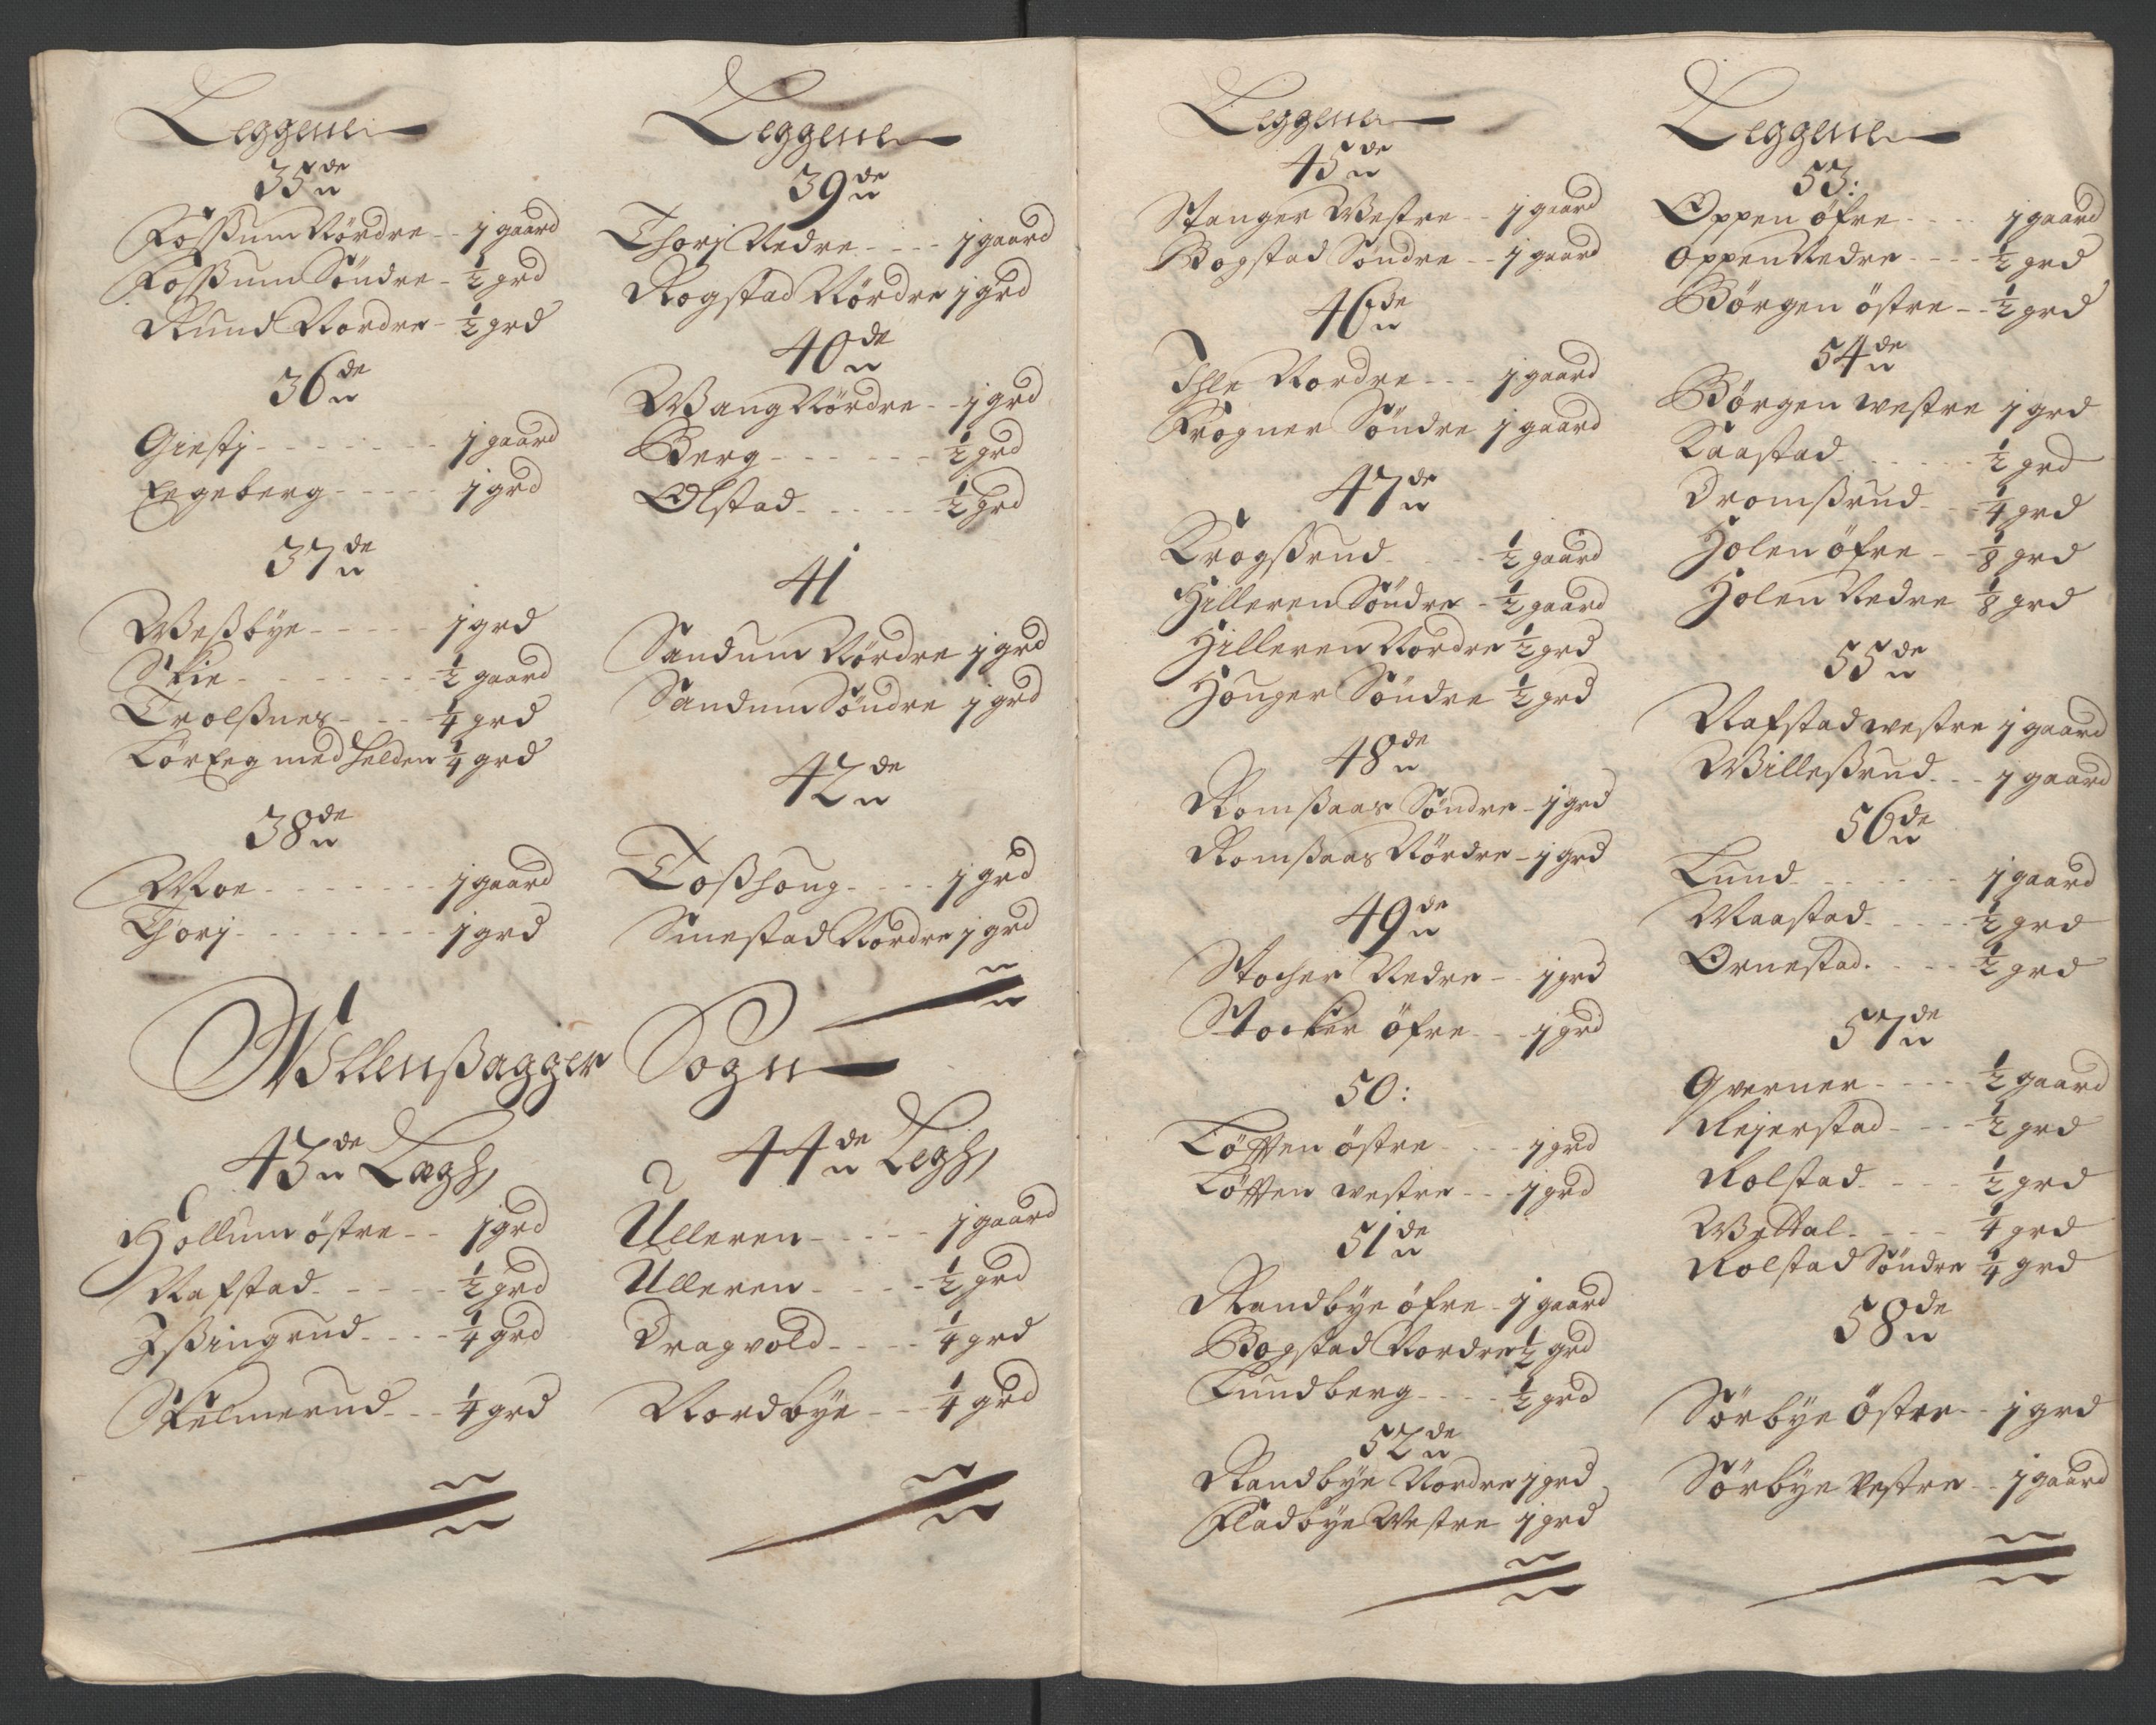 Leggene
35de
Fossum Nordre 1 gaard
Fossum Söndre ½ grd
Rund Nordre ½ grd
36de
Giestj 1 gaard
Eegeberg 1 grd
37de
Weßbye 1 grd
Skie ½ gaard
Trolßnes ¼ grd
med Helden ¼ grd
38de
Moe 1 gaard
Thorj 1 grd
Leggene
39de
Thorj Nedre 1 gaard
Rogstad Nördre 1 grd
40de
Wang Nördre 1 grd
Berg ½ grd
Olstad ½ grd
41
Sandum Nördre 1 grd
Sandum Söndre 1 grd
42de
Toßhoug 1 grd
Smestad Nordre 1 grd
Ullenßagger Sogn
43de Lægh
Hollum östre 1 grd
Rafstad ½ grd
Ißingrud ¼ grd
Skelmerud ¼ grd
44de Legh
Ulleren 1 gaard
Ulleren ½ grd
Dragvold ¼ grd
Nordbye ¼ grd
Leggene
45de
Stanger Westre 1 gaard
Bogstad Söndre 1 gaard
46de
Ihle Nordre 1 gaard
Frogner Söndre 1 gaard
47de
Krogßrud ½ gaard
Hilleren Söndre ½ gaard
Hilleren Nordre ½ grd
Höuger Söndre ½ grd
48de
Romßaas Söndre 1 grd
Romßaas Nördre 1 grd
49de
Stocher Nedre 1 grd
Stocker öfre 1 grd
50:
Löffen östre 1 grd
Löffen westre 1 grd
51de
Randbye öfre 1 gaard
Bogstad Nordre ½ grd
Lundberg ½ grd
52de
Randbye Nordre 1 grd
Fladbye Westre 1 grd
Leggene
53:
Oppen öfre 1 gaard
Oppen Nedre ½ grd
Börgen östre ½ grd
54de
Börgen westre 1 grd
Kaastad ½ grd
Dromßrud ¼ grd
Holen öfre ⅛ grd
Holen Nedre ⅛ grd
55de
Rafstad westre 1 gaard
Willeßrud 1 gaard
56de
Lund 1 gaard
Maastad ½ grd
Ornestad ½ grd
57de
Qverner ½ gaard
Rejerstad ½ grd
Rolstad ½ grd
Wettal ¼ grd
Rolstad Söndre ¼ grd
58de
Sörbye östre 1 grd
Sörbye Vestre 1 gaard